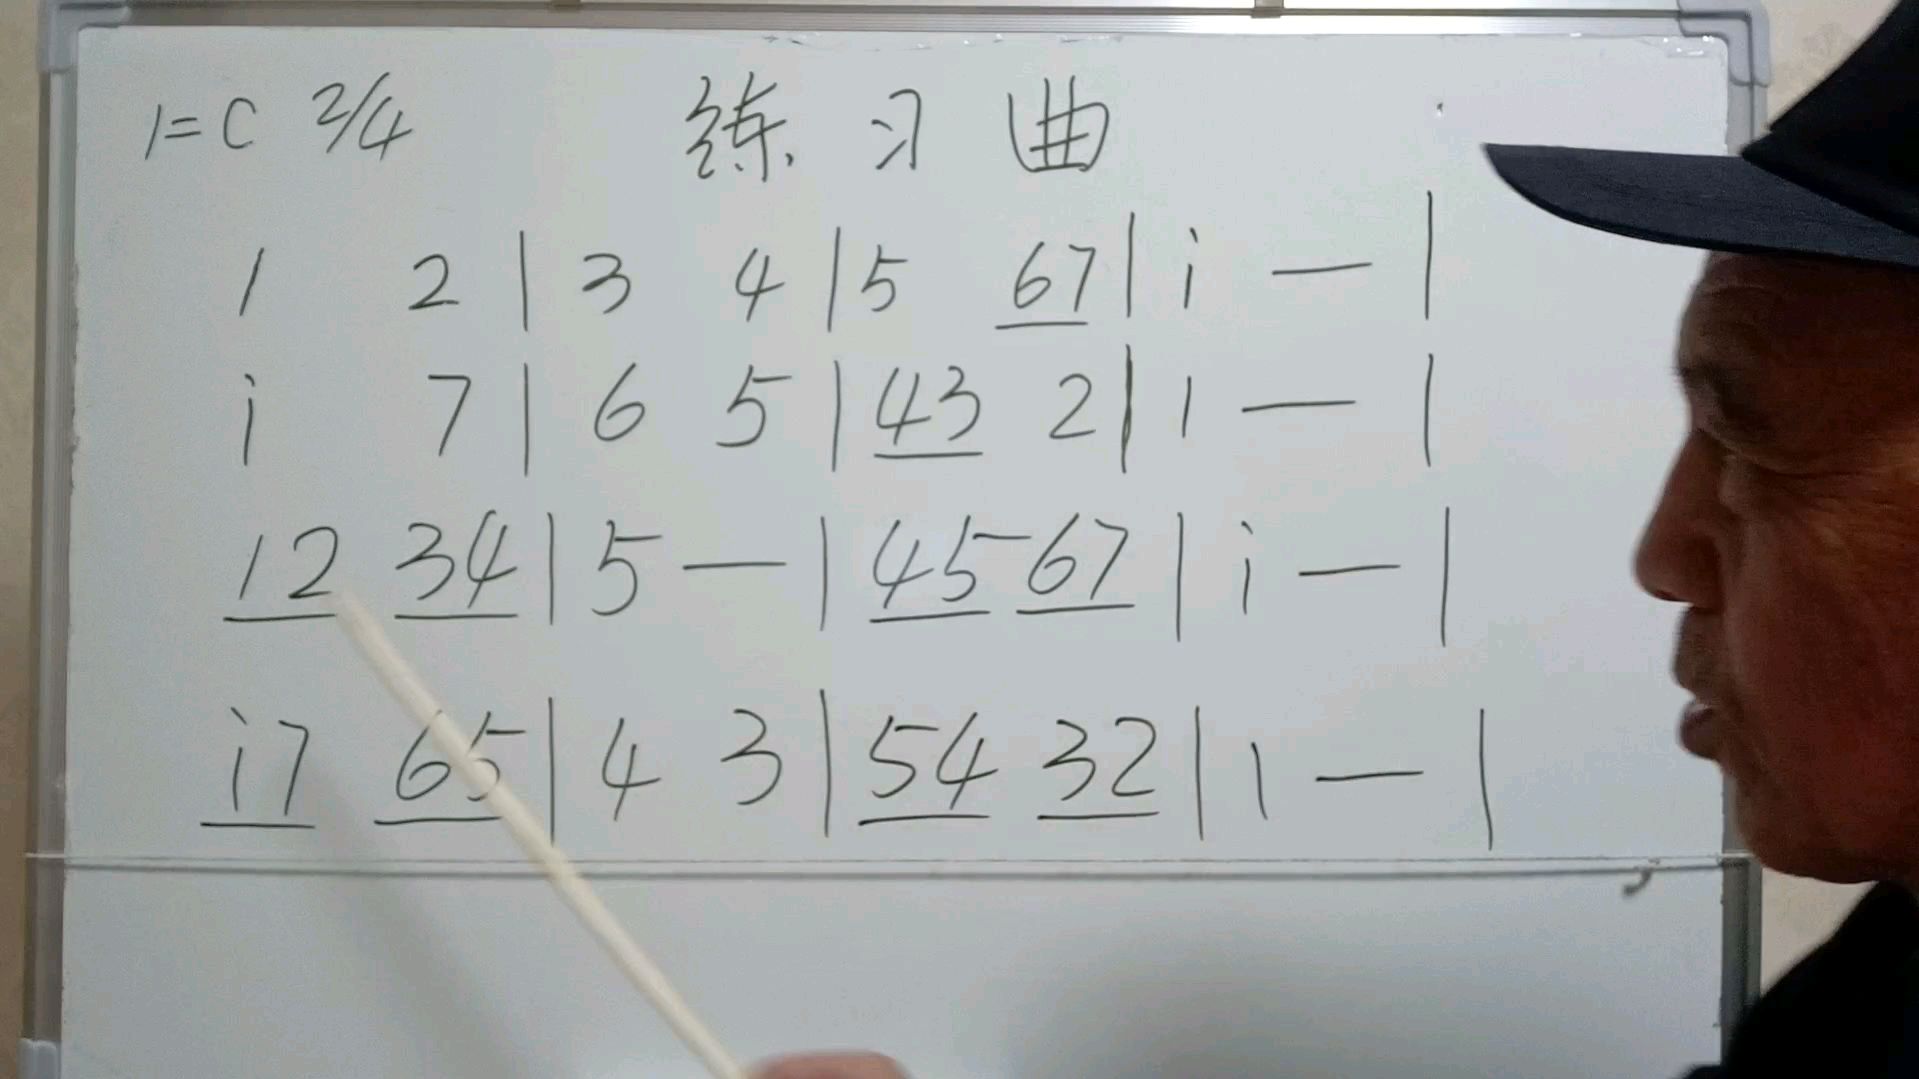 1=C 2/4 练习曲
1 2 | 3 4 | 5 67 | i — |
i 7 | 6 5 | 43 2 | 1 — |
12 34 | 5 — | 45 67 | i — |
i7 65 | 4 3 | 54 32 | 1 — |